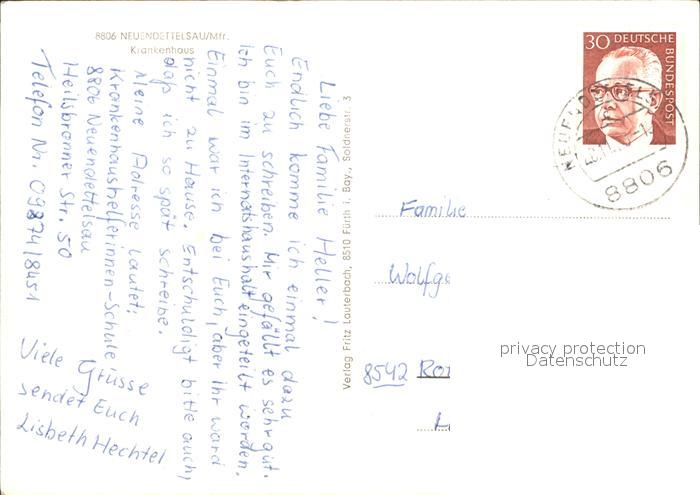 8806 NEUENDETTELSAU/Mfr.
Krankenhaus
Liebe Familie Heller!
Endlich komme ich einmal dazu
Euch zu schreiben. Mir gefällt es sehr gut.
Ich bin im Internatshaushalt eingeteilt worden.
Einmal war ich bei Euch, aber ihr ward
nicht zu Hause. Entschuldigt bitte auch,
daß ich so spät schreibe.
Meine Adresse lautet:
Krankenhaushelferinnen-Schule
8806 Neuendettelsau
Heilsbronner Str. 50
Telefon Nr. 09874/8451
Viele Grüsse
sendet Euch
Lisbeth Hechtel
Verlag Fritz Lauterbach, 8510 Fürth i. Bay., Soldnerstr. 3
30 DEUTSCHE
BUNDESPOST
8806
Familie
Wolfga
8542 Rot
privacy protection
Datenschutz